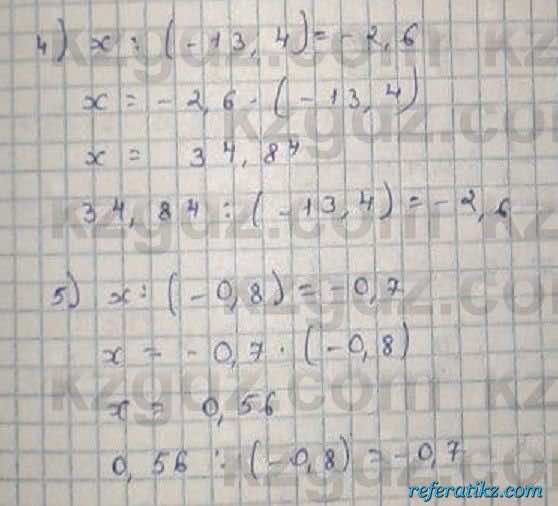 4) x : (-13,4) = -2,6
x = -2,6 · (-13,4)
x = 34,84
34,84 : (-13,4) = -2,6
5) x : (-0,8) = -0,7
x = -0,7 · (-0,8)
x = 0,56
0,56 : (-0,8) = -0,7
kzgdz.com
referatikz.com